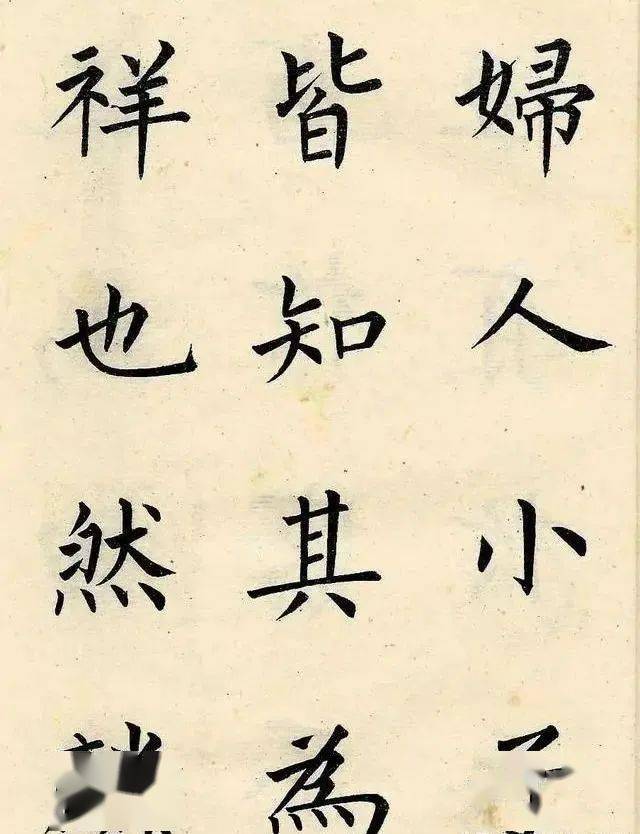 婦人小
皆知其為
祥也然